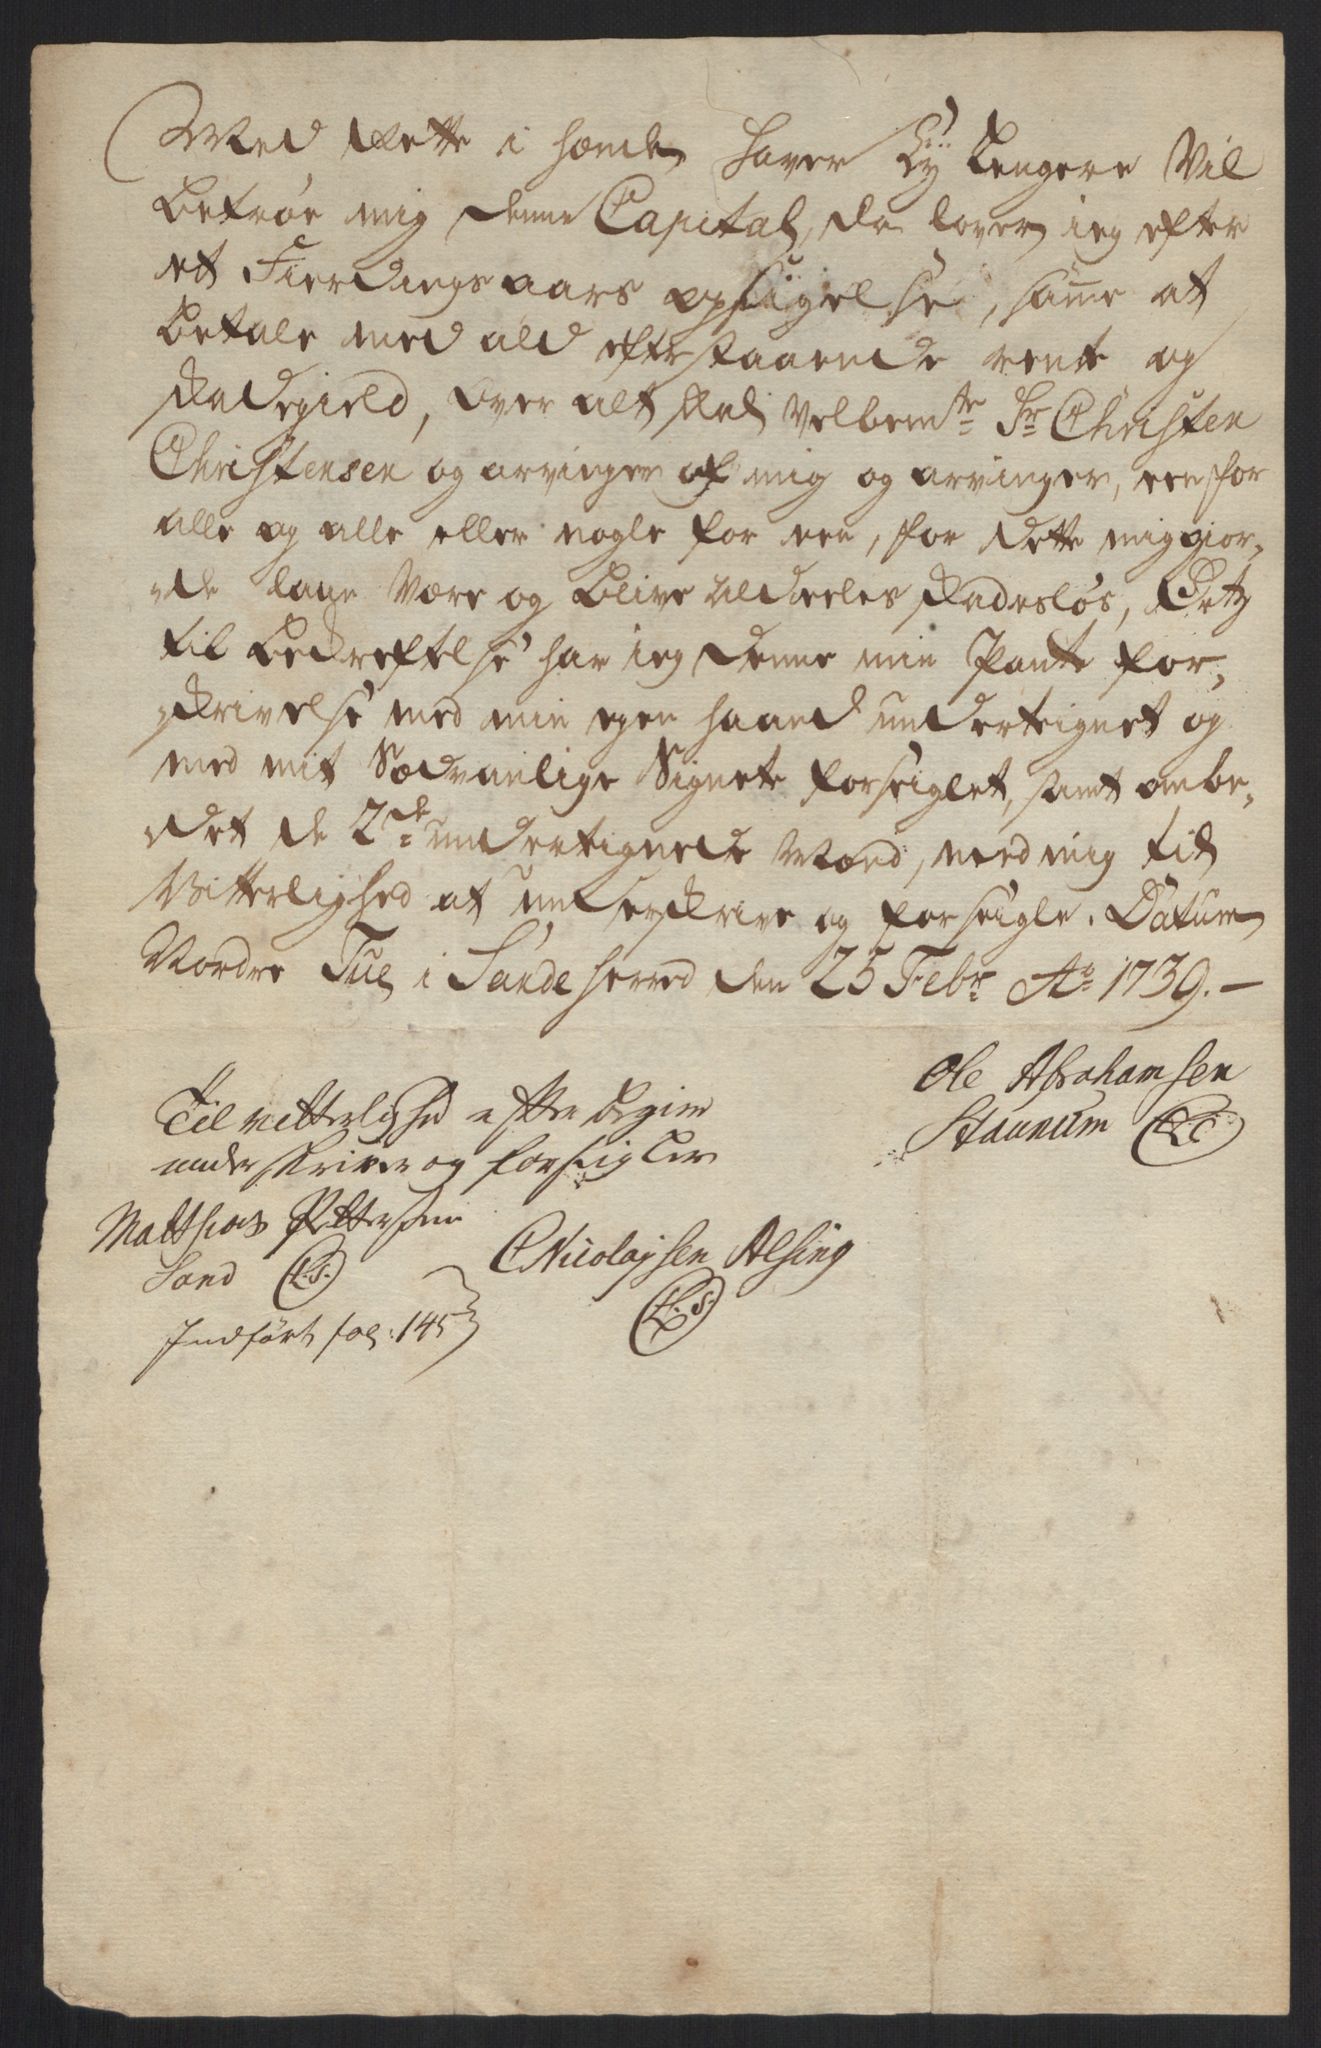 Med Rette i hænde haver Ey lengere Vil
betröe mig denne Capital, da lover ieg efter
et Fierdings aars opsigelse, same at
betale med ald efterstaaende rente og
skadegield, Over alt skal Velbemte Sr Christen
Christensen og arvinger af mig og arvinger, een for
alle og alle eller nogle for een, for dette mig gior,
de laan Være og blive aldeeles skadeslös, Dets
til bekreftelse har ieg denne min Pante for,
skrivelse med min egen haand underteignet og
med mit Sædvanlige Signete forseiglet, samt ombe,
det de 2de undertignede Mænd, med mig til
Vitterlighed at underskrive og forseigle. Datum
Nordre Tue i Sande herred den 25 Febr Ao 1739.—
Ole Abrahamsen
Staurum
Til vitterlighed efter begier
underskriver og forseigler
Matthias Pettersen
Sand (L.S.)
CNicolaysen Alsing
(L.S.)
Indført fol: 145